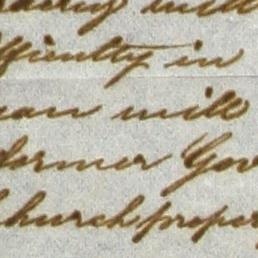 fficulty in
an will
former Gov
Church proper